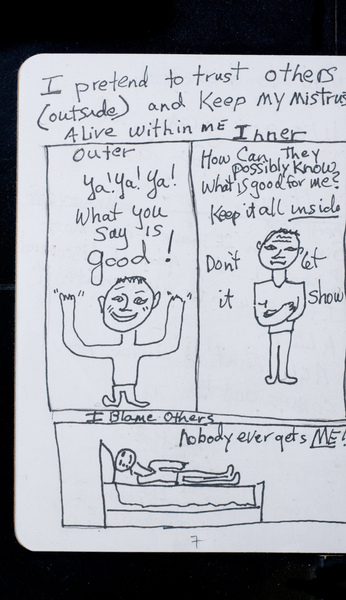 I pretend to trust others
(outside) and Keep my Mistrus
Alive within me
Outer
Ya! Ya! Ya!
What you
Say is
good!
Inner
How Can They
possibly know
What is good for me?
Keep it all inside
Don't let
it show
I Blame Others
Nobody ever gets ME!
7